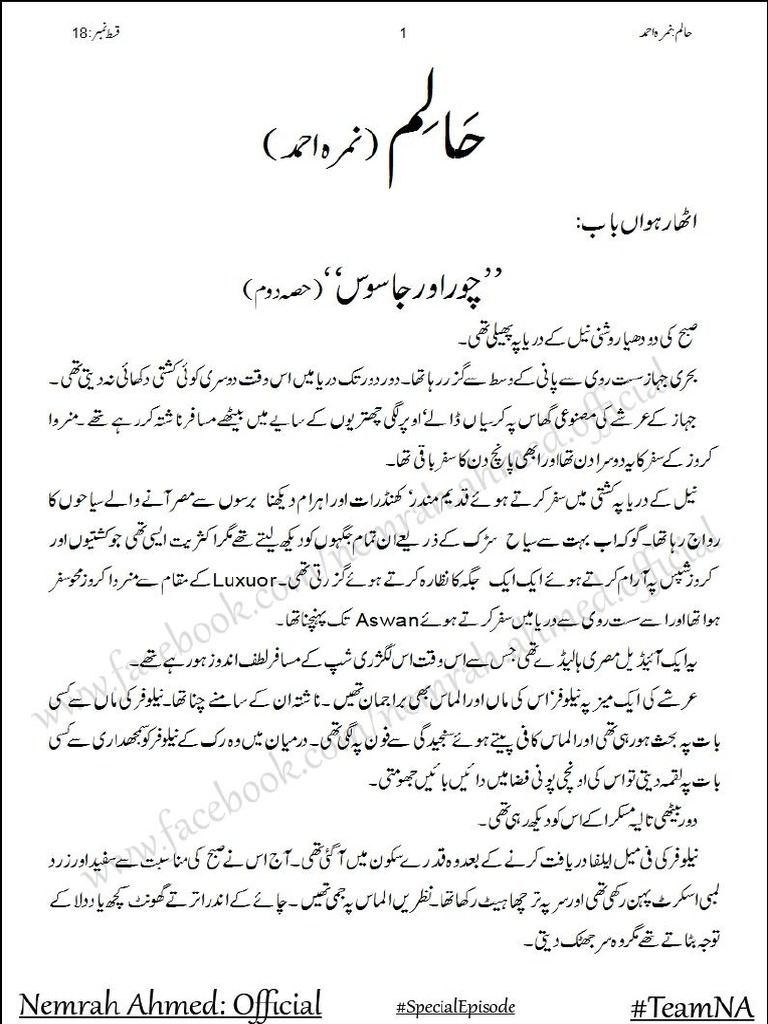 حالم: نمرہ احمد 1 قسط نمبر: 18
حَالِم (نمرہ احمد)
اٹھارہواں باب:
’’چور اور جاسوس‘‘ (حصہ دوم)
صبح کی دودھیا روشنی نیل کے دریا پہ پھیلی تھی۔
بحری جہاز سست روی سے پانی کے وسط سے گزر رہا تھا۔ دور دور تک دریا میں اس وقت دوسری کوئی کشتی دکھائی نہ دیتی تھی۔
جہاز کے عرشے کی مصنوعی گھاس پہ کرسیاں ڈالے‘ اوپر لگی چھتریوں کے سایے میں بیٹھے مسافر ناشتہ کر رہے تھے۔ منروا
کروز کے سفر کا یہ دوسرا دن تھا اور ابھی پانچ دن کا سفر باقی تھا۔
نیل کے دریا پہ کشتی میں سفر کرتے ہوئے قدیم مندر‘ کھنڈرات اور اہرام دیکھنا برسوں سے مصر آنے والے سیاحوں کا
رواج رہا تھا۔ گو کہ اب بہت سے سیاح سڑک کے ذریعے ان تمام جگہوں کو دیکھ لیتے تھے مگر اکثریت ایسی تھی جو کشتیوں اور
کروز شپس پہ آرام کرتے ہوئے ایک ایک جگہ کا نظارہ کرتے ہوئے گزرتی تھی۔ Luxuor کے مقام سے منروا کروز محوِ سفر
ہوا تھا اور اسے سست روی سے دریا میں سفر کرتے ہوئے Aswan تک پہنچنا تھا۔
یہ ایک آئیڈیل مصری ہالیڈے تھی جس سے اس وقت اس لگژری شپ کے مسافر لطف اندوز ہو رہے تھے۔
عرشے کی ایک میز پہ نیلوفر‘ اس کی ماں اور الماس بھی براجمان تھیں۔ ناشتہ ان کے سامنے چنا تھا۔ نیلوفر کی ماں سے کسی
بات پہ بحث ہو رہی تھی اور الماس کافی پیتے ہوئے سنجیدگی سے فون پہ لگی تھی۔ درمیان میں وہ رک کے نیلوفر کو سمجھداری سے کسی
بات پہ لقمہ دیتی تو اس کی اونچی پونی فضا میں دائیں بائیں جھومتی۔
دور بیٹھی تالیہ مسکرا کے اس کو دیکھ رہی تھی۔
نیلوفر کی فی میل ایلفا دریافت کرنے کے بعد وہ قدرے سکون میں آ گئی تھی۔ آج اس نے صبح کی مناسبت سے سفید اور زرد
لمبی اسکرٹ پہن رکھی تھی اور سر پہ ترچھا ہیٹ رکھا تھا۔ نظریں الماس پہ جمی تھیں۔ چائے کے اندر اترتے گھونٹ کچھ یاد دلا کے
توجہ بٹاتے تھے مگر وہ سر جھٹک دیتی۔
www.facebook.com/nemrah.ahmed.official
www.facebook.com/nemrah.ahmed.official
Nemrah Ahmed: Official #SpecialEpisode #TeamNA